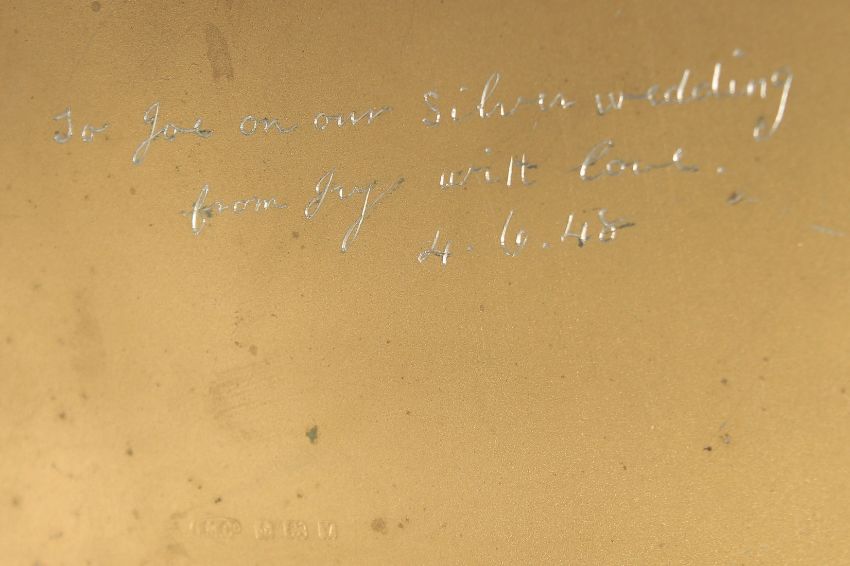 To Joe on our Silver wedding
from Joy with love.
4.6.48